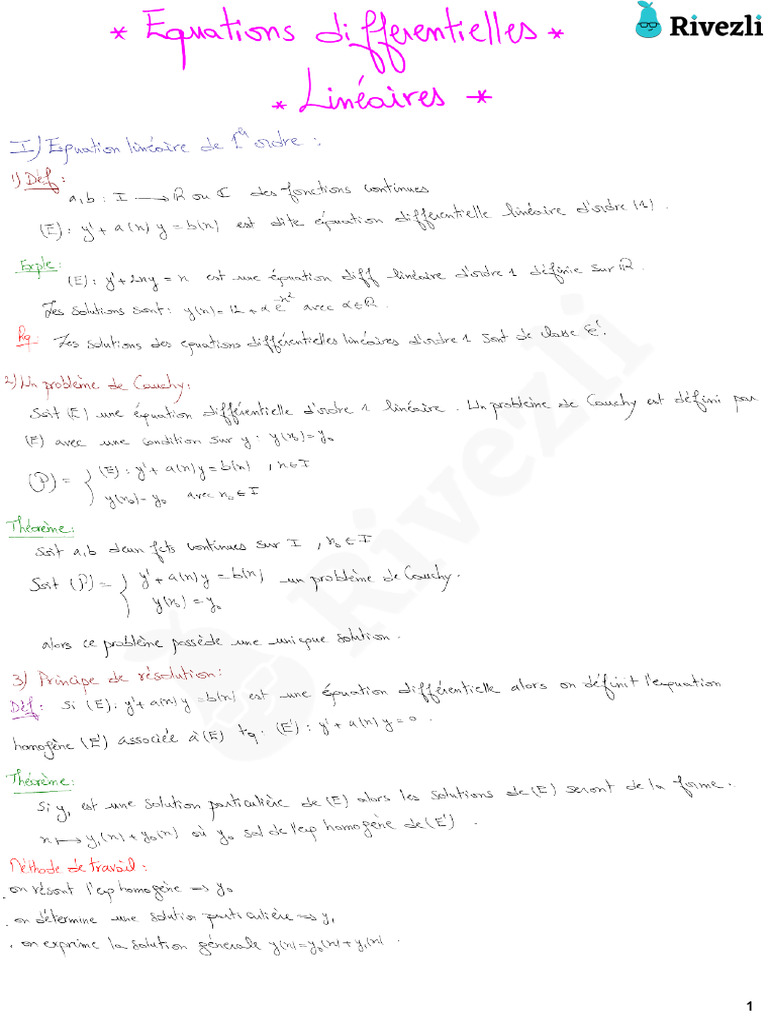 * Equations differentielles *
* Linéaires *
Rivezli
I) Equation linéaire de 1er ordre :
1) Déf :
a, b : I → R ou C des fonctions continues
(E) : y' + a(x) y = b(x) est dite équation différentielle linéaire d'ordre (1).
Exple :
(E) : y' + 2xy = x est une équation diff linéaire d'ordre 1 définie sur R.
Les solutions sont : y(x) = 12 + α e^-x² avec α ∈ R.
Rq : Les solutions des equations différentielles linéaires d'ordre 1 sont de classe C¹.
2) Un problème de Cauchy :
Soit (E) une équation différentielle d'ordre 1 linéaire. Un problème de Cauchy est défini par
(E) avec une condition sur y. y(x₀) = y₀
(P) = { (E) : y' + a(x) y = b(x) , x ∈ I
y(x₀) = y₀ avec x₀ ∈ I
Théorème :
Soit a, b deux fcts continues sur I , x₀ ∈ I
Soit (P) = { y' + a(x) y = b(x) un problème de Cauchy.
y(x₀) = y₀
alors ce problème possède une unique solution.
3) Principe de résolution :
Déf : Si (E). y' + a(x) y = b(x) est une équation différentielle alors on définit l'equation
homogène (E') associée à (E) tq. (E') : y' + a(x) y = 0 .
Théorème :
Si y₁ est une solution particulière de (E) alors les solutions de (E) seront de la forme.
x ↦ y₁(x) + y₀(x) où y₀ sol de l'eq homogène de (E') .
Méthode de travail :
. on résout l'eq homogène → y₀
. on détermine une solution particulière → y₁
. on exprime la solution générale y(x) = y₀(x) + y₁(x) .
Rivezli
1